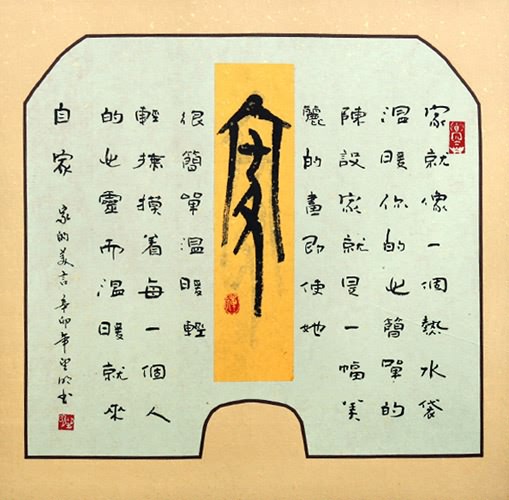 家就像一個熱水袋
溫暖你的心簡單的
陳設家就是一幅美
麗的畫即使她
家
很簡單溫暖輕
輕撫摸着每一個人
的心靈而溫暖就來
自家
家的美言辛卯年